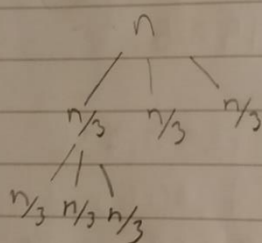 n
n/3 n/3 n/3
n/3 n/3 n/3